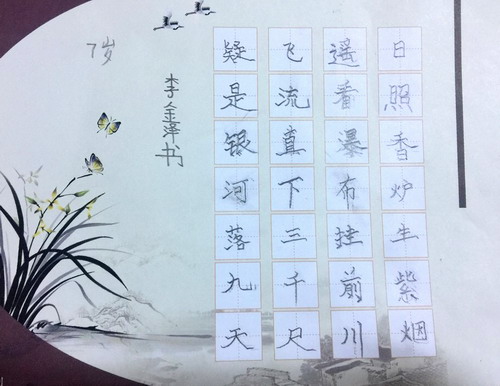 日照香炉生紫烟
遥看瀑布挂前川
飞流直下三千尺
疑是银河落九天
李金泽书
7岁